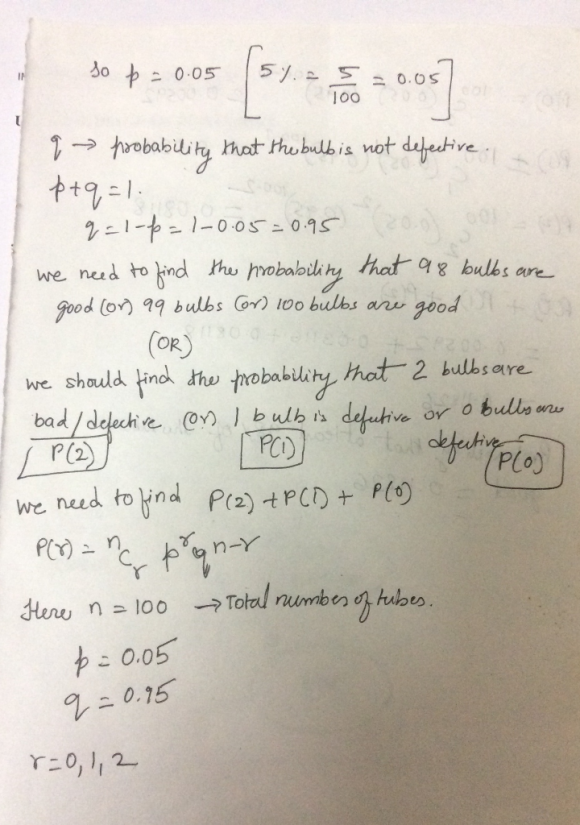 So p = 0.05 [5% = 5/100 = 0.05]
q → probability that the bulb is not defective.
p+q = 1.
q = 1-p = 1-0.05 = 0.95
we need to find the probability that 98 bulbs are
good (or) 99 bulbs (or) 100 bulbs are good
(OR)
we should find the probability that 2 bulbs are
bad/defective (or) 1 bulb is defective or 0 bulbs are
defective
P(2) P(1) P(0)
we need to find P(2) + P(1) + P(0)
P(r) = nCr p^r q^n-r
Here n = 100 → Total number of tubes.
p = 0.05
q = 0.95
r = 0, 1, 2